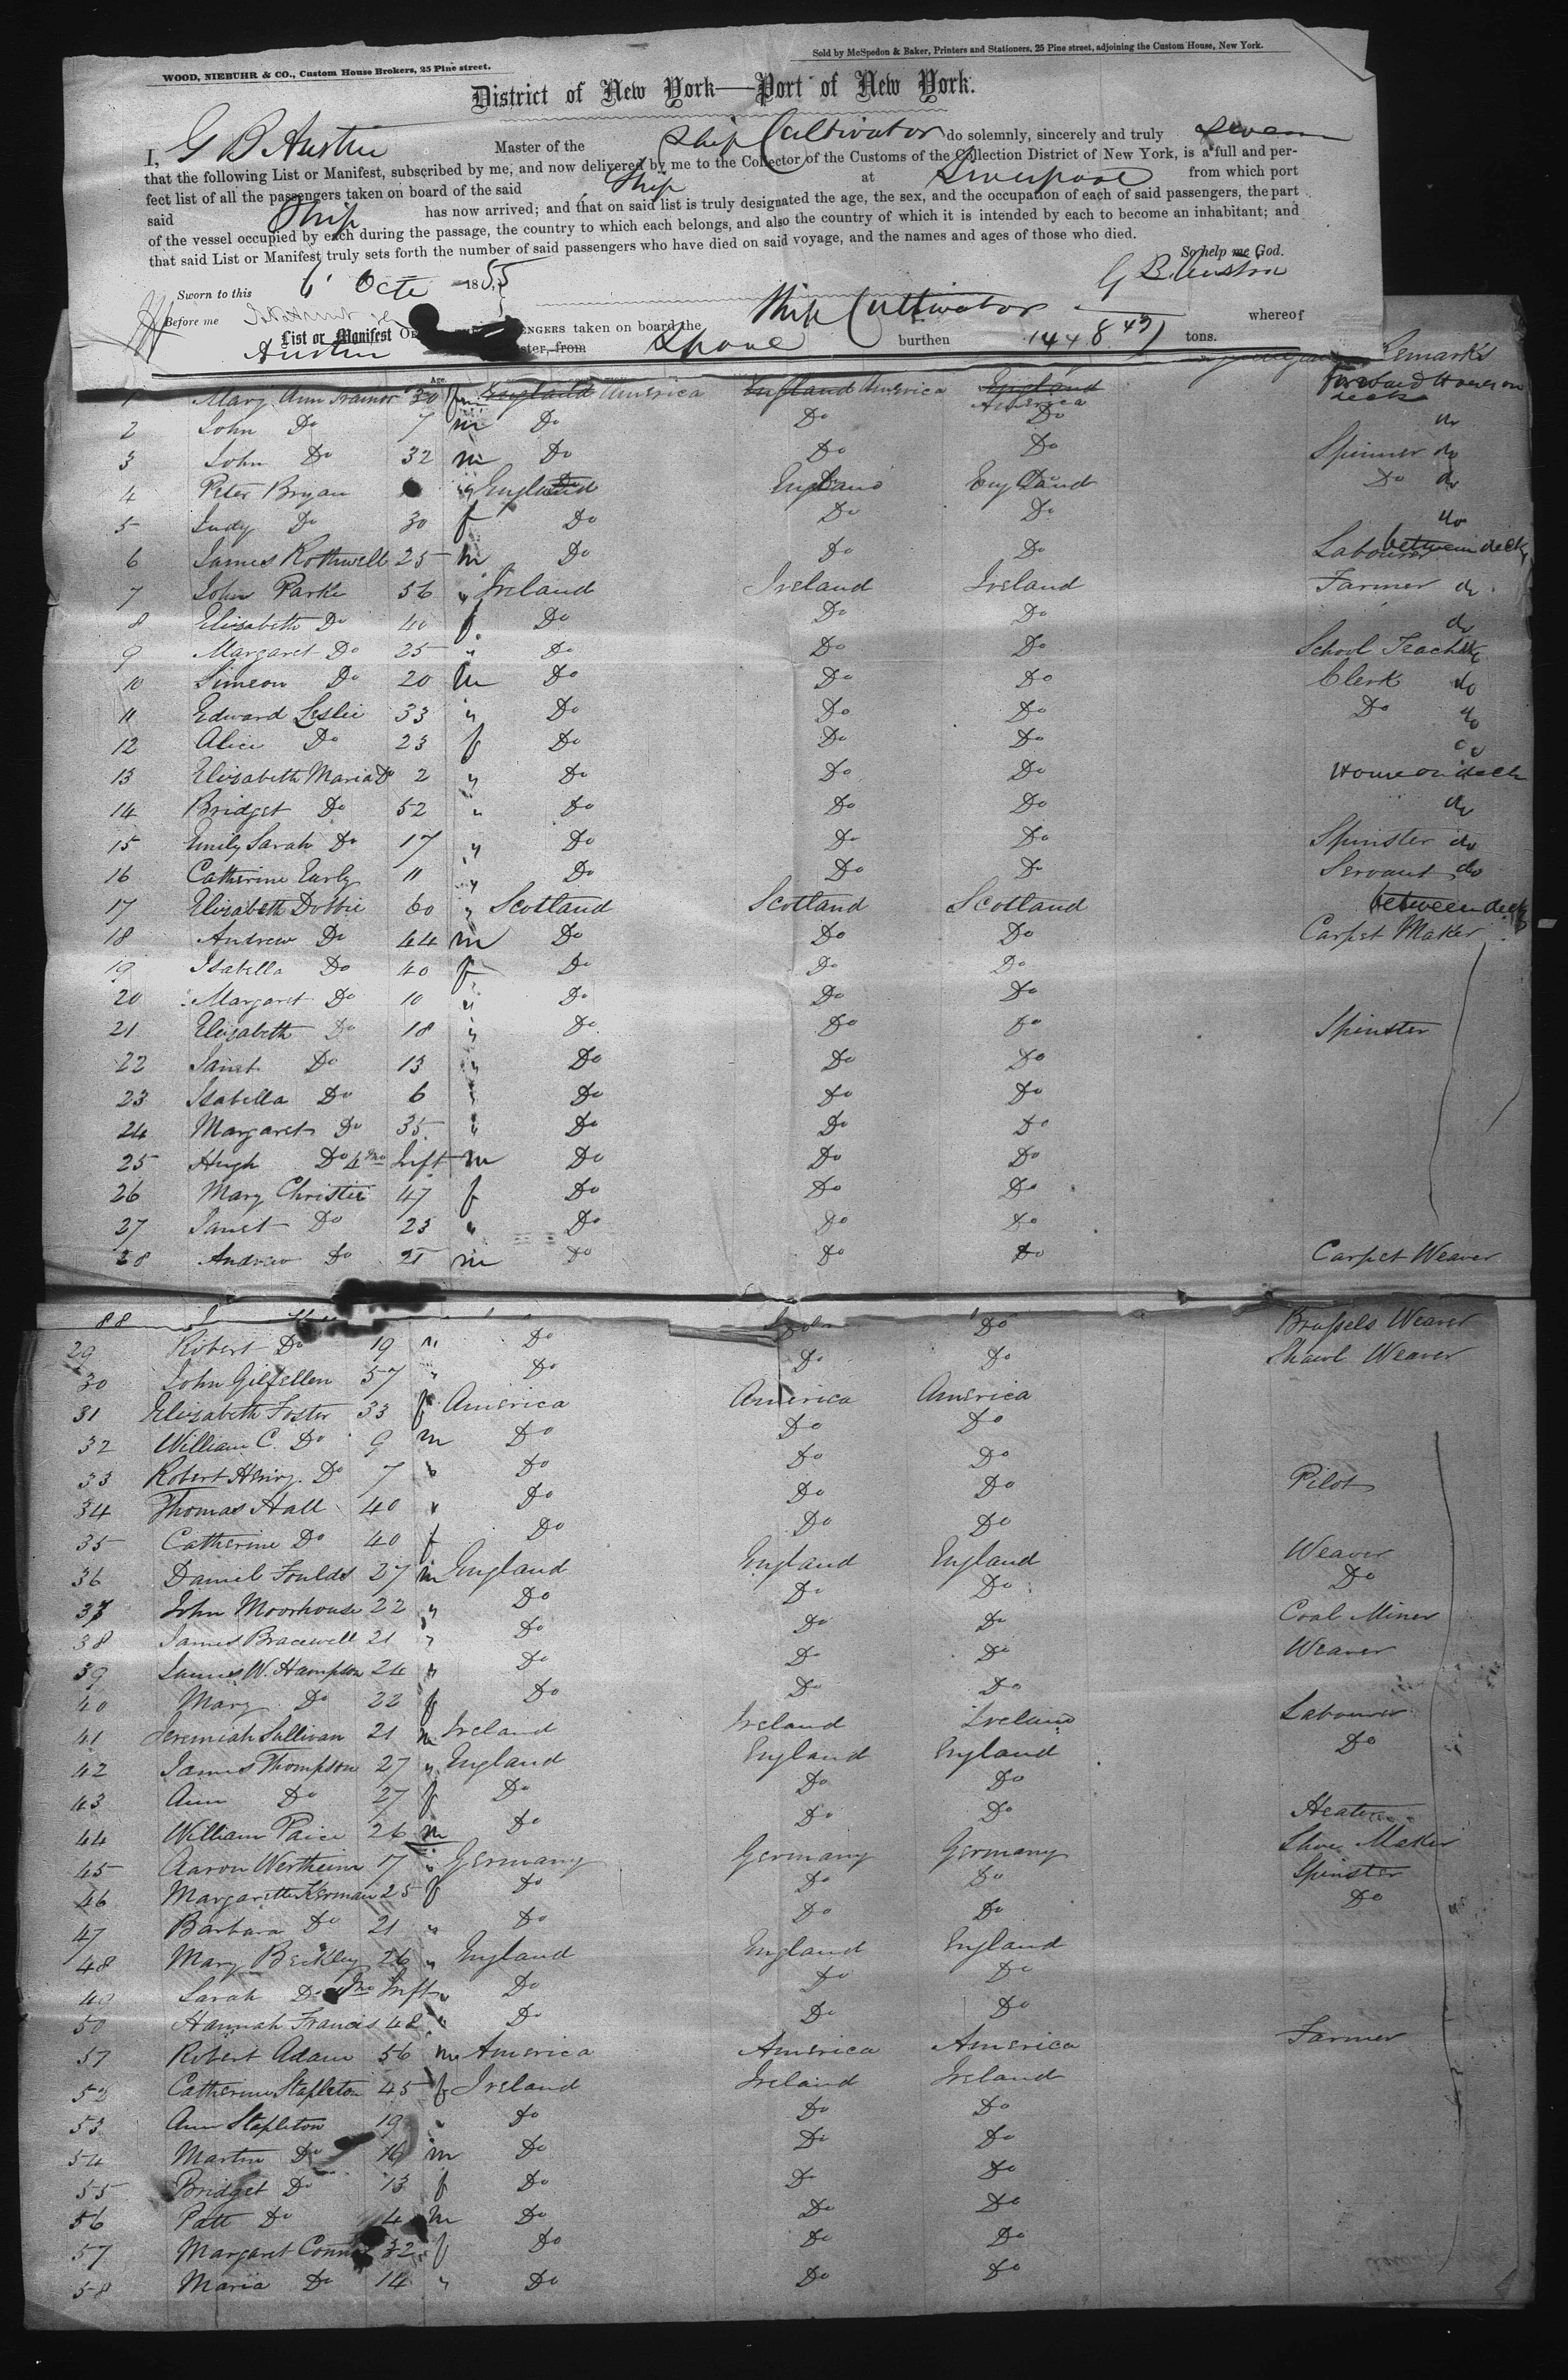 WOOD, NIEBUHR & CO., Custom House Brokers, 25 Pine street.
Sold by McSpedon & Baker, Printers and Stationers, 25 Pine street, adjoining the Custom House, New York.
District of New York—Port of New York.
I, G B Austin Master of the Ship Cultivator do solemnly, sincerely and truly swear
that the following List or Manifest, subscribed by me, and now delivered by me to the Collector of the Customs of the Collection District of New York, is a full and per-
fect list of all the passengers taken on board of the said Ship at Liverpool from which port
said Ship has now arrived; and that on said list is truly designated the age, the sex, and the occupation of each of said passengers, the part
of the vessel occupied by each during the passage, the country to which each belongs, and also the country of which it is intended by each to become an inhabitant; and
that said List or Manifest truly sets forth the number of said passengers who have died on said voyage, and the names and ages of those who died.
So help me God.
Sworn to this 6 Octr 1855 G B Austin
Before me
List or Manifest OF PASSENGERS taken on board the Ship Cultivator whereof
Austin ster, from Lpool burthen 1448 tons.
Age. Remarks
1 Mary Ann 30 fm England America England America England America Forward House on deck
2 John Do 7 m Do Do Do do
3 John Do 32 m Do Do Do Spinner do
4 Peter Bryan " England England England Do do
5 Judy Do 30 f Do Do Do do
6 James Rothwell 25 m Do Do Do Labourer between deck
7 John Parke 56 " Ireland Ireland Ireland Farmer do
8 Elizabeth Do 40 f Do Do Do do
9 Margaret Do 25 " Do Do Do School Teacher do
10 Simeon Do 20 m Do Do Do Clerk do
11 Edward Leslie 33 " Do Do Do Do do
12 Alice Do 23 f Do Do Do do
13 Elizabeth Maria Do 2 " Do Do Do House on deck
14 Bridget Do 52 " Do Do Do do
15 Emily Sarah Do 17 " Do Do Do Spinster do
16 Catherine Early 11 " Do Do Do Servant do
17 Elizabeth Dobbie 60 " Scotland Scotland Scotland between decks
18 Andrew Do 44 m Do Do Do Carpet Maker
19 Isabella Do 40 f Do Do Do
20 Margaret Do 10 " Do Do Do
21 Elizabeth Do 18 " Do Do Do Spinster
22 Janet Do 13 " Do Do Do
23 Isabella Do 6 " Do Do Do
24 Margaret Do 35 " Do Do Do
25 Hugh Do 4 mo Inft m Do Do Do
26 Mary Christie 47 f Do Do Do
27 Janet Do 23 " Do Do Do
28 Andrew Do 21 m Do Do Do Carpet Weaver
29 Robert Do 19 m Do Do Do Brussels Weaver
30 John Gilfellen 57 " Do Do Do Shawl Weaver
31 Elizabeth Foster 33 f America America America
32 William C. Do 9 m Do Do Do
33 Robert Henry Do 7 " Do Do Do
34 Thomas Hall 40 " Do Do Do Pilot
35 Catherine Do 40 f Do Do Do
36 Daniel Foulds 27 m England England England Weaver
37 John Moorhouse 22 " Do Do Do Do
38 James Bracewell 21 " Do Do Do Coal Miner
39 James W. Hampson 24 " Do Do Do Weaver
40 Mary Do 22 f Do Do Do
41 Jeremiah Sullivan 21 m Ireland Ireland Ireland Labourer
42 James Thompson 27 " England England England Do
43 Ann Do 27 f Do Do Do
44 William Paice 26 m Do Do Do Heater
45 Aaron Wertheim 17 " Germany Germany Germany Shoe Maker
46 Margarette Kerman 25 f Do Do Do Spinster
47 Barbara Do 21 " Do Do Do Do
48 Mary Beckley 26 " England England England
49 Sarah Do Mo Inft " Do Do Do
50 Hannah Francis 42 " Do Do Do
51 Robert Adam 56 m America America America Farmer
52 Catherine Stapleton 45 f Ireland Ireland Ireland
53 Ann Stapleton 19 " Do Do Do
54 Martin Do 16 m Do Do Do
55 Bridget Do 13 f Do Do Do
56 Patt Do 4 m Do Do Do
57 Margaret 32 f Do Do Do
58 Maria Do 14 " Do Do Do